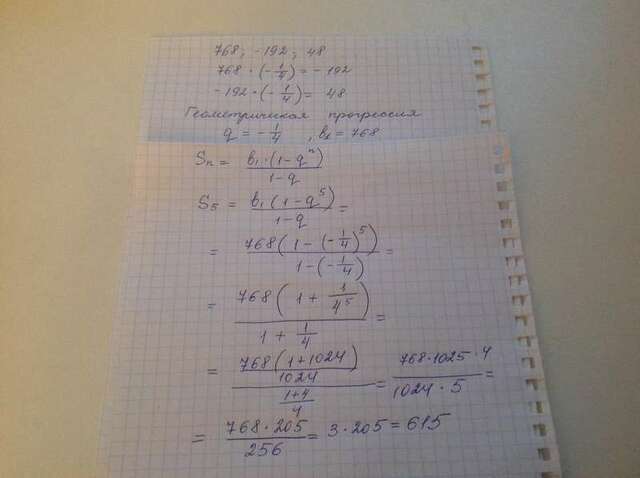 768; -192; 48
768 · (-1/4) = -192
-192 · (-1/4) = 48
Геометрическая прогрессия
q = -1/4 , b₁ = 768
Sₙ = b₁·(1-qⁿ)/(1-q)
S₅ = b₁(1-q⁵)/(1-q) =
= 768(1-(-1/4)⁵)/(1-(-1/4)) =
= 768(1+1/4⁵)/(1+1/4) =
= (768(1+1024)/1024)/((1+4)/4) = 768·1025·4/(1024·5) =
= 768·205/256 = 3·205 = 615